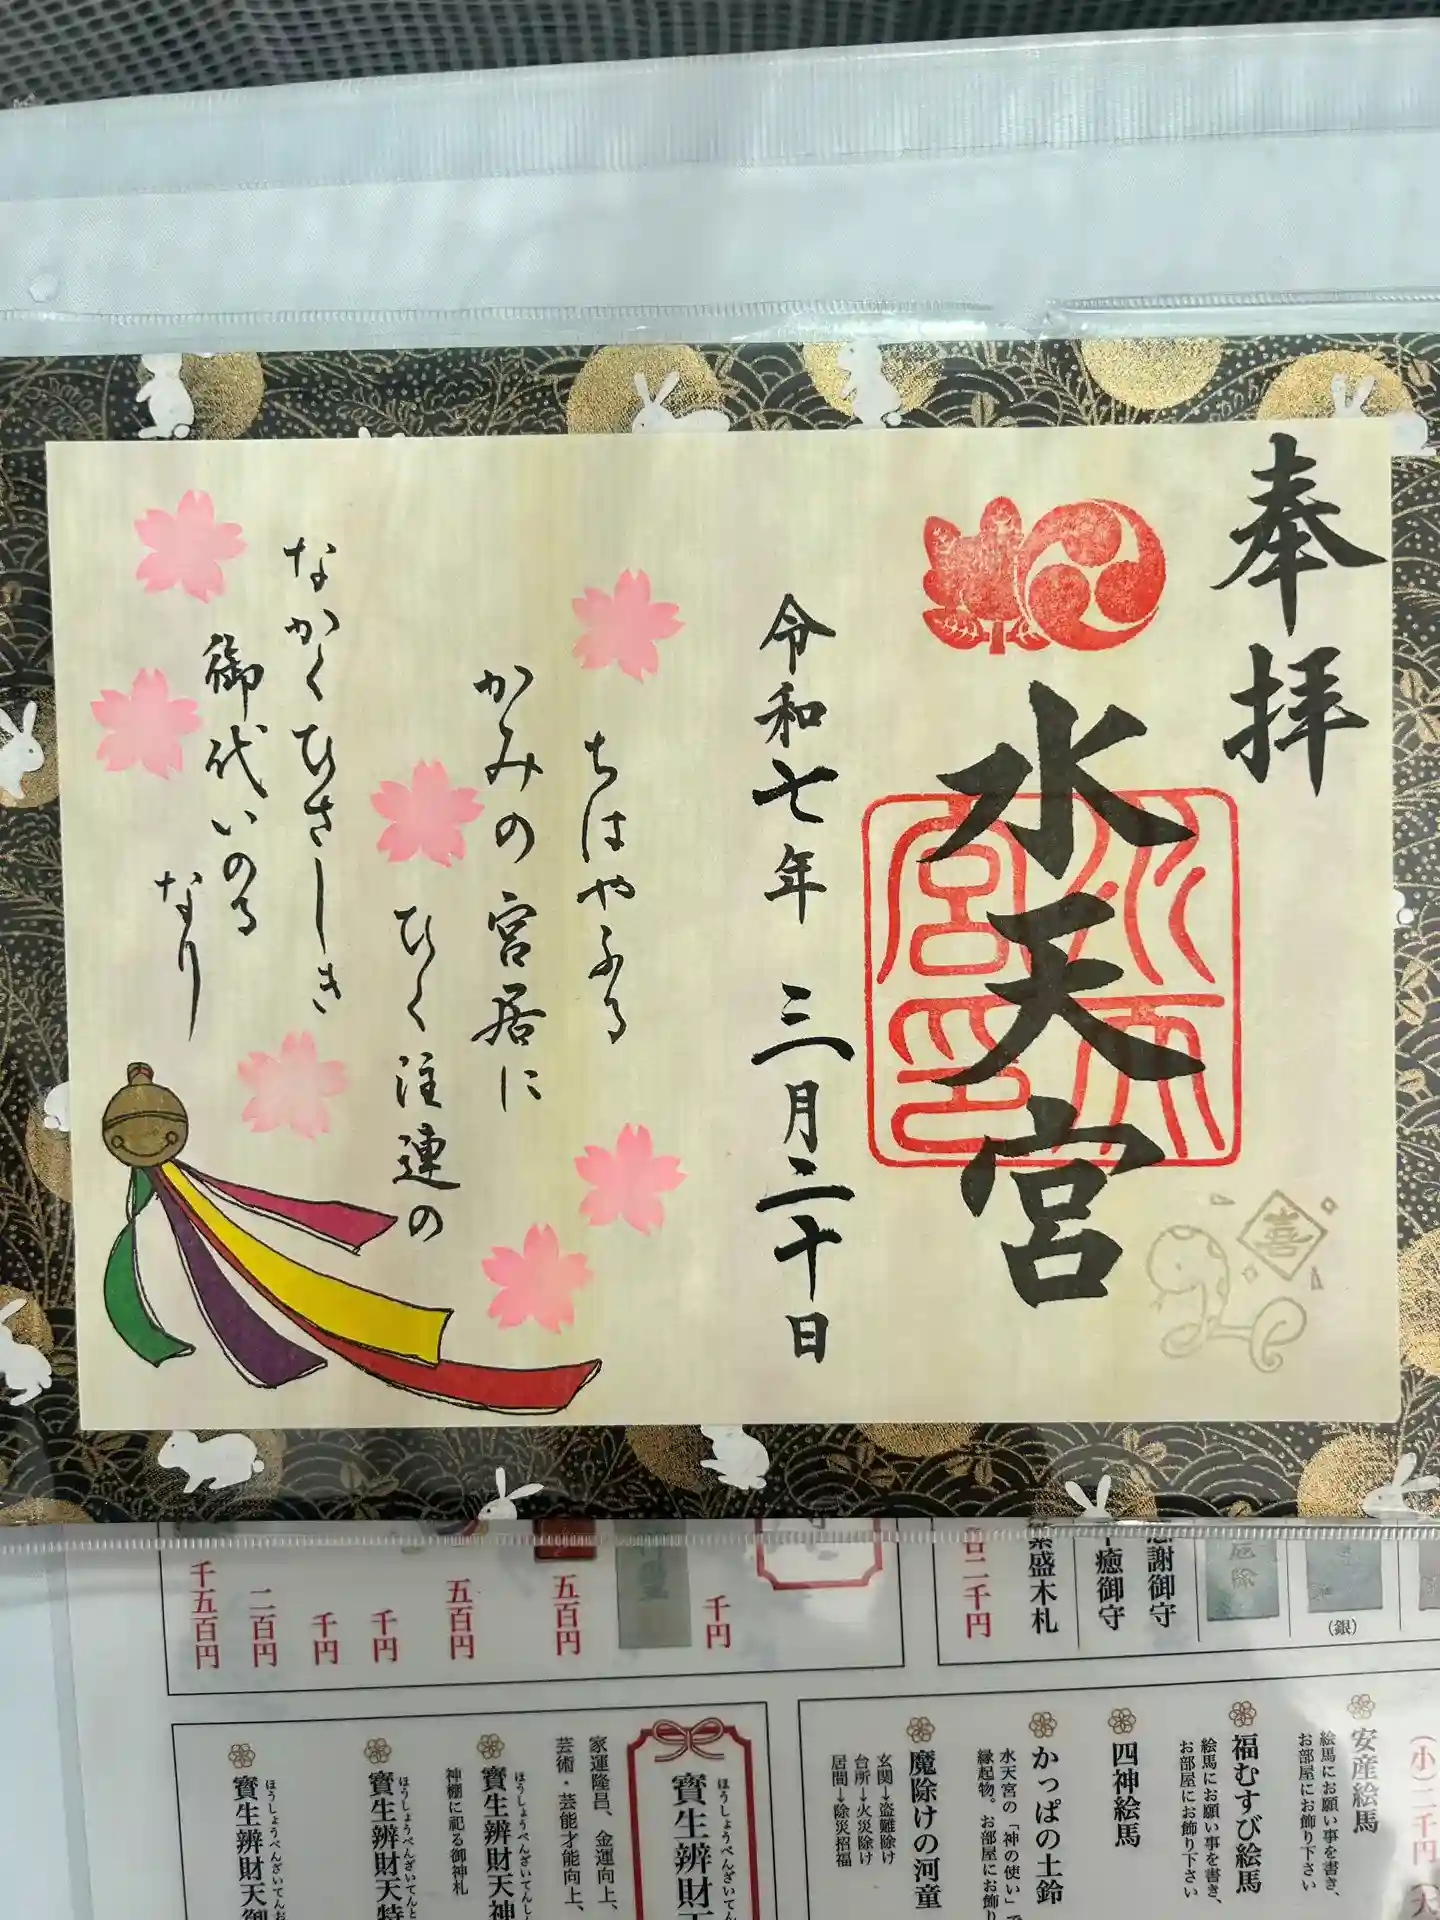 奉拝
水天宮
令和七年 三月二十日
ちはやふる
かみの宮居に
ひく注連の
なかくひさしき
御代いのる
なり
喜
感謝御守
平癒御守
繁盛木札
二千円
(銀)
千円
五百円
五百円
千円
千円
二百円
千五百円
(小)二千円
安産絵馬
絵馬にお願い事を書き、
お部屋にお飾り下さい
福むすび絵馬
絵馬にお願い事を書き、
お部屋にお飾り下さい
四神絵馬
かっぱの土鈴
水天宮の「神の使い」で
縁起物。お部屋にお飾り
魔除けの河童
玄関→盗難除け
台所→火災除け
居間→除災招福
寳生辨財天
ほうしょうべんざいてん
家運隆昌、金運向上、
芸術・芸能才能向上、
寳生辨財天神
ほうしょうべんざいてんしん
神棚に祀る御神札
寳生辨財天特
ほうしょうべんざいてんと
寳生辨財天御
ほうしょうべんざいてんお